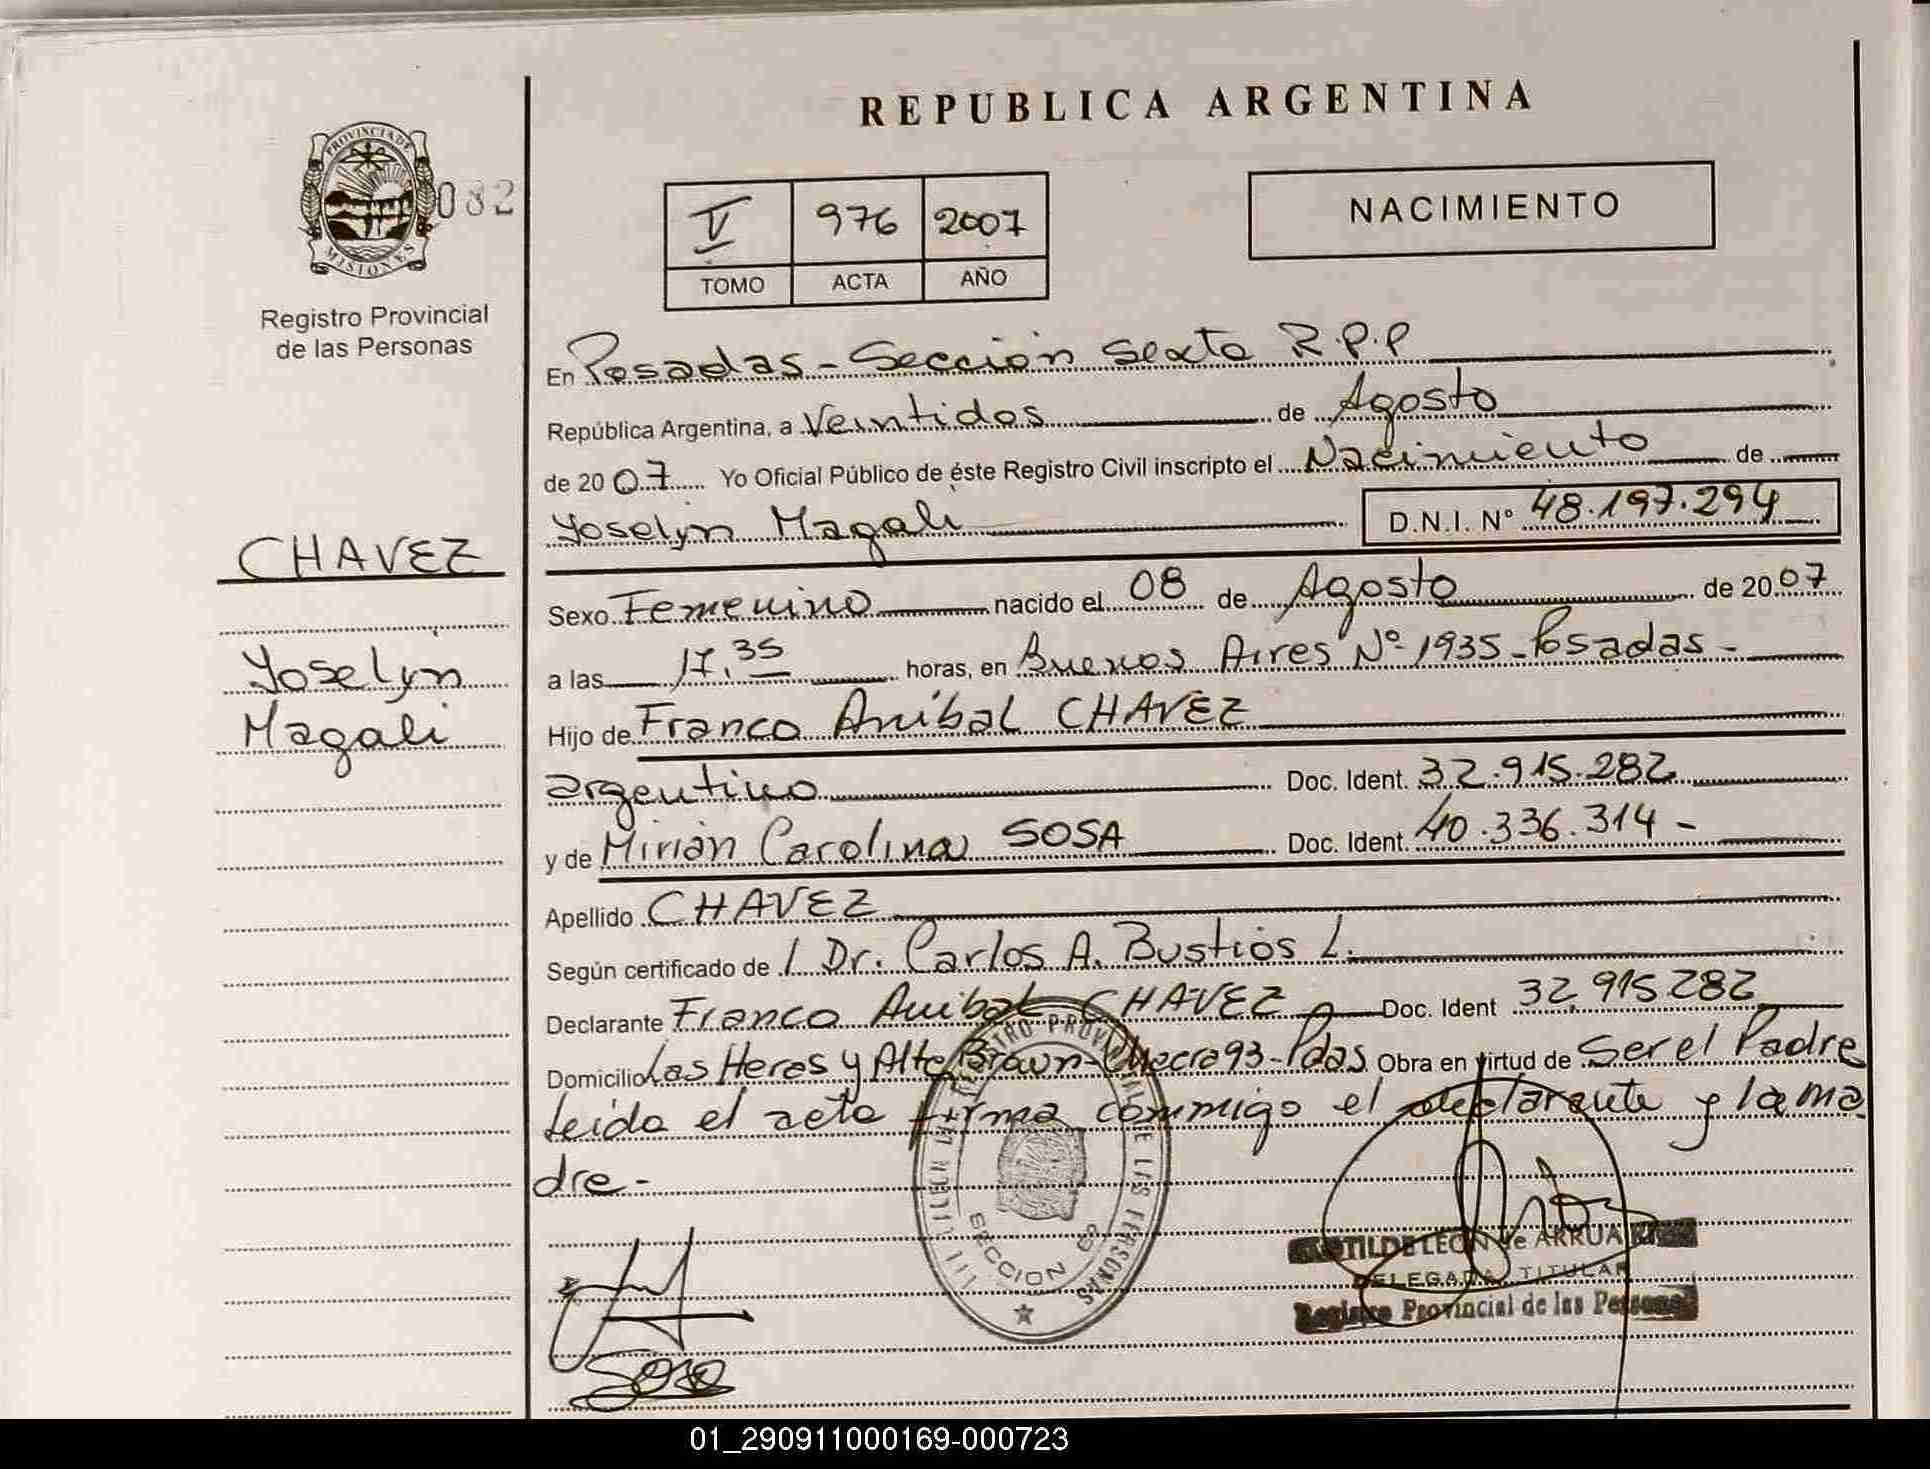 REPUBLICA ARGENTINA
PROVINCIA DE
MISIONES
082
Registro Provincial
de las Personas
V 976 2007
TOMO ACTA AÑO
NACIMIENTO
En Posadas - Sección Sexta R.P.P
República Argentina, a Veintidos de Agosto
de 2007 Yo Oficial Público de éste Registro Civil inscripto el Nacimiento de
Yoselyn Magali D.N.I. N° 48.197.294
CHAVEZ
Yoselyn
Magali
Sexo Femenino nacido el 08 de Agosto de 2007
a las 17,35 horas, en Buenos Aires Nº 1935 - Posadas -
Hijo de Franco Anibal CHAVEZ
argentino Doc. Ident. 32.915.282
y de Mirian Carolina SOSA Doc. Ident. 40.336.314 -
Apellido CHAVEZ
Según certificado de / Dr. Carlos A. Bustios L.
Declarante Franco Anibal CHAVEZ Doc. Ident 32.915.282
Domicilio Las Heras y Alte Brown - Chacra 93 - Pdas Obra en virtud de Ser el Padre
leida el acta firma conmigo el declarante y la ma
dre -
SECCION
LEON de ARRUA
DELEGADA TITULAR
Registro Provincial de las Personas
Sosa
01_290911000169-000723